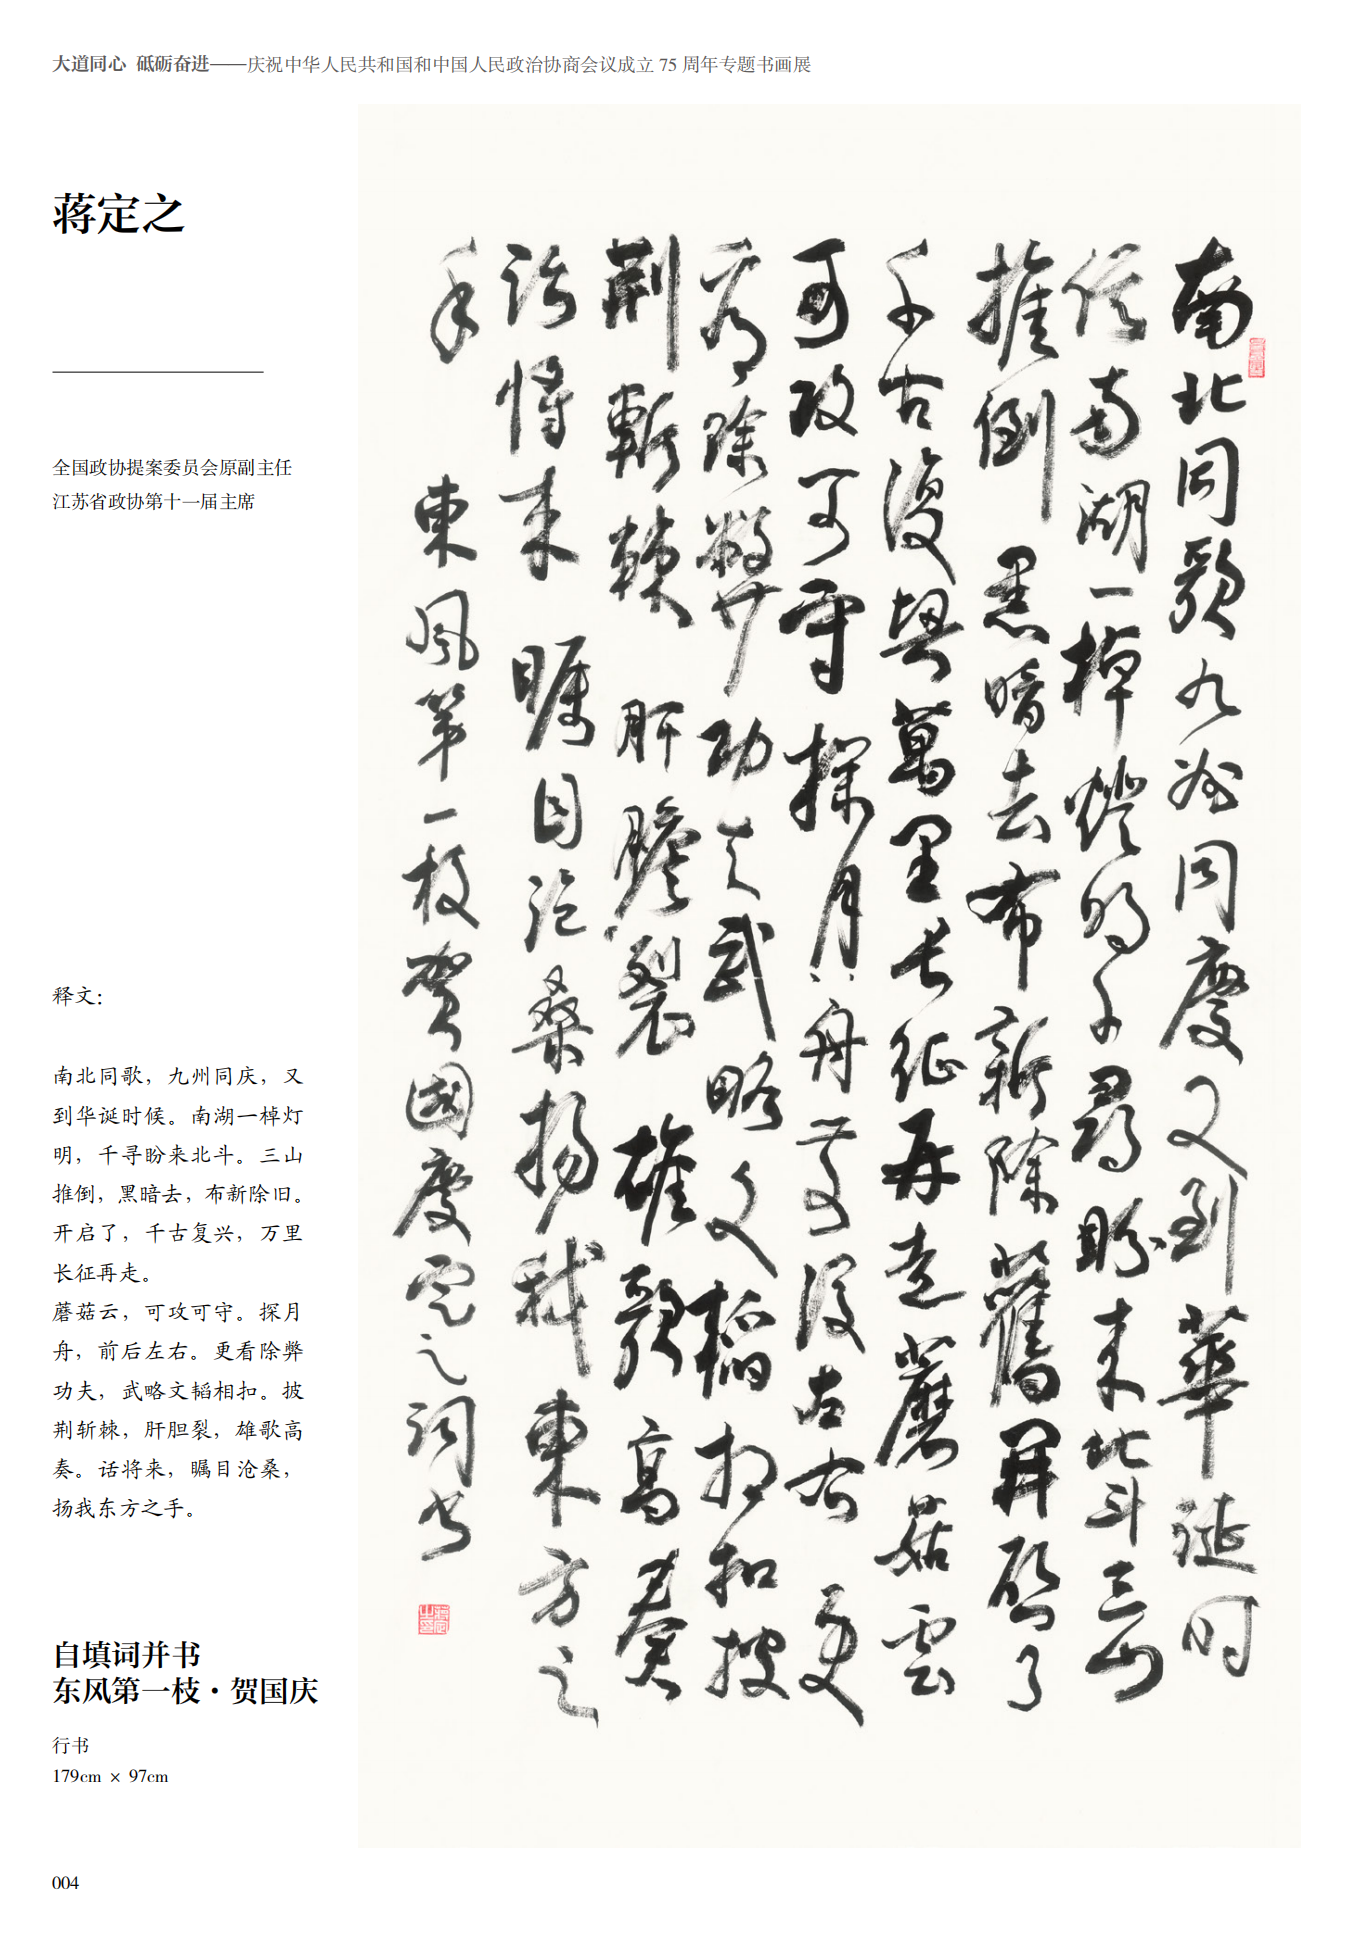 大道同心 砥砺奋进——庆祝中华人民共和国和中国人民政治协商会议成立 75 周年专题书画展
蒋定之
全国政协提案委员会原副主任
江苏省政协第十一届主席
释文：
南北同歌，九州同庆，又
到华诞时候。南湖一棹灯
明，千寻盼来北斗。三山
推倒，黑暗去，布新除旧。
开启了，千古复兴，万里
长征再走。
蘑菇云，可攻可守。探月
舟，前后左右。更看除弊
功夫，武略文韬相扣。披
荆斩棘，肝胆裂，雄歌高
奏。话将来，瞩目沧桑，
扬我东方之手。
自填词并书
东风第一枝·贺国庆
行书
179cm × 97cm
004
南北同歌九州同慶又到華誕时
候南湖一棹燈明千尋盼来北斗三山
推倒黑暗去布新除舊開啓了
千古復興萬里长征再走蘑菇雲
可攻可守探月舟前後左右更
看除弊功夫武略文韜相扣披
荆斬棘肝膽裂雄歌高奏
話將来瞩目沧桑扬我東方之
手 東風第一枝賀國慶定之词书